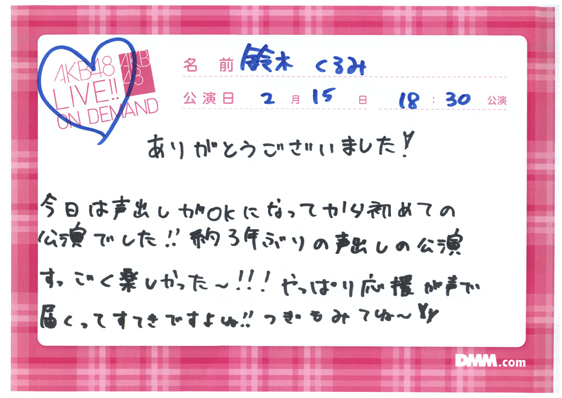 AKB48
LIVE!!
ON DEMAND
AKB
48
名前 鈴木 くるみ
公演日 2月15日 18:30 公演
ありがとうございました!
今日は声出しがOKになってから初めての
公演でした!!約3年ぶりの声出しの公演
すっごく楽しかった〜!!!やっぱり応援が声で
届くってすてきですよね!!つぎもみてね〜
DMM.com